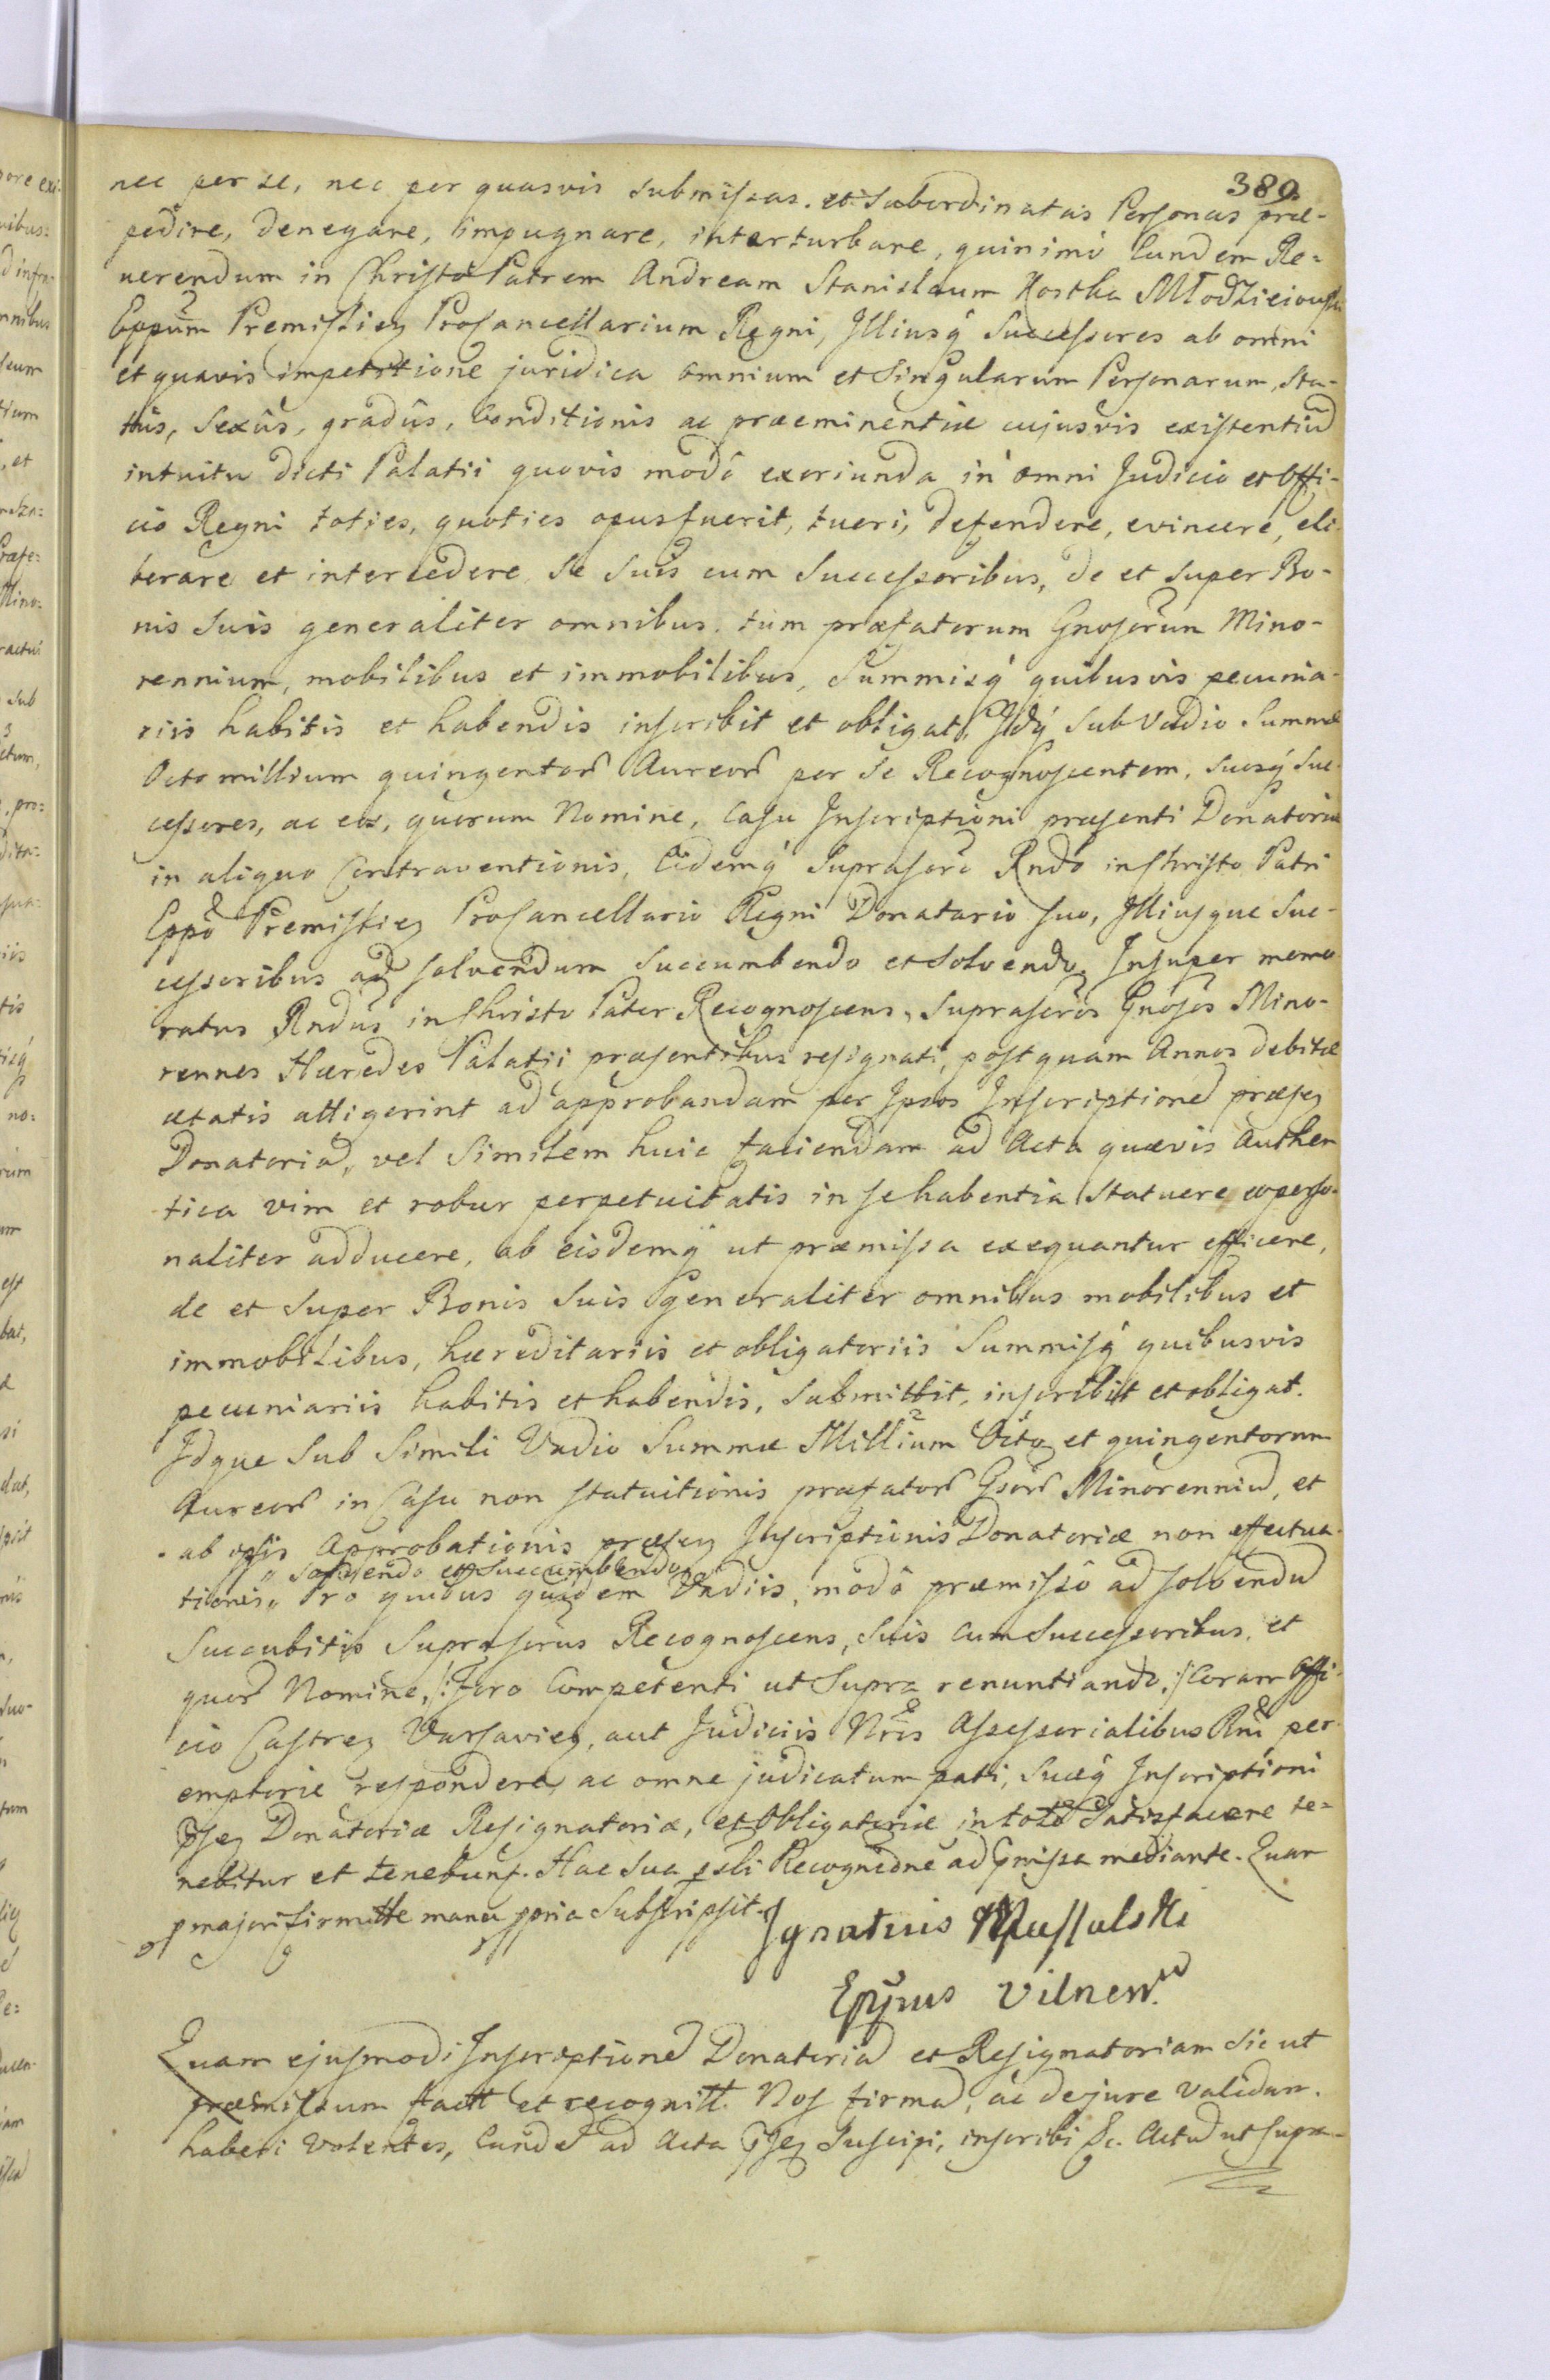 389.
nec per se, nec per quasvis submissas et Subordinatas Personas præ-
pedire, denegare, impugnare, interturbare, quinimò Eundem Re-
uerendum in Christo Patrem Andream Stanislaum Kostka Młodzieiouski
Eppum Premislien Procancellarium Regni, Illiusq́ Successores ab omni
et quavis impetitione juridica omnium et Singularum Personarum, Sta-
tûs, Sexûs, gradûs, Conditionis ac præeminentiæ cujusvis existentiũ
intuitu dicti Palatii quovis modô exoriunda in omni Judicio et Offi-
cio Regni toties, quoties opus fuerit, tueri, defendere, evincere, eli-
berare et intercedere se suis cum Successoribus, de et super Bo-
nis Suis generaliter omnibus, tum præfatorum Gnosorum Mino-
rennium, mobilibus et immobilibus, Summisq́ quibusvis pecunia-
riis habitis et habendis inscribit et obligat. Idq́ sub Vadio Summæ
Octo millium quingentor Aureor per se Recognoscentem, suosq́ Suc-
cessores, ac eos, quorum Nomine, Casu Inscriptioni præsenti Donatoriæ
in aliquo Contraventionis, Eidemq́ Suprascro Rndo in Christo Patri
Eppo Premislien Procancellario Regni Donatario suo, Illiusque Suc-
cessoribus ad solvendum Succumbendo et Solvendo. Insuper memo
ratus Rndus in Christo Pater Recognoscens, Suprascros Gnosos Mino-
rennes Hæredes Palatii præsentibus resignati, postquam Annos debitæ
ætatis attigerint ad approbandam per Ipsos Inscriptionẽ præsen
Donatoriã, vel Similem huic faciendam ad Acta quævis Authen
tica vim et robur perpetuitatis in se habentia Statuere, et perso-
naliter adducere, ab eisdemq́ ut præmissa exequantur efficere,
de et super Bonis Suis generaliter omnibus mobilibus et
immobilibus, hæreditariis et obligatoriis Summisq́ quibusvis
pecuniariis habitis et habendis, Submittit, inscribit et obligat.
Idque Sub Simili Vadio Summæ Millium Octo et quingentorum
Aureor in Casu non statuitionis præfator Gsor Minorenniũ, et
ab ipsis Approbationis præsen Inscriptionis Donatoriæ non effectua-
" solvendo et Succumbendo
tionis " Pro quibus quidem Vadiis, modô præmissô ad solvendũ
Succubitis Suprascrus Recognoscens, Suis cum Successoribus, et
quor Nomine, /: Foro Competenti ut Supra renuntiando, :/ Coram Offi-
cio Castren Varsavien, aut Judiciis Nris Assessorialibus Rni per-
emptorie respondere, ac omne judicatum pati, Suæq́ Inscriptioni
pñsen Donatoriæ Resignatoriæ, et Obligatoriæ in toto Satisfacere te-
nebitur et tenebunt. Hac Sua psli Recognitione ad Pmissa mediante. Quam
p majori firmitte manu ppria Subscripsit.
Ignatius Massalski
Eppus Vilnen.
Quam ejusmodi Inscriptionẽ Donatoriã et Resignatoriam Sic ut
præmissum fact et recognitt. Nos firmã, ac de jure validam
haberi volentes, Eandẽ ad Acta pñsen Suscipi, inscribi &c. Actũ ut supra